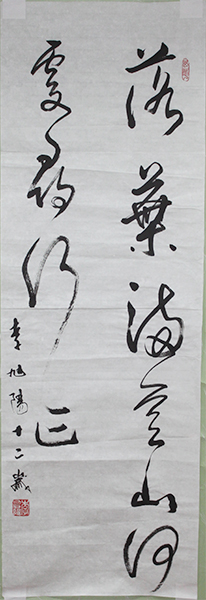 落葉滿空山何
處尋行迹
李旭陽十二歲